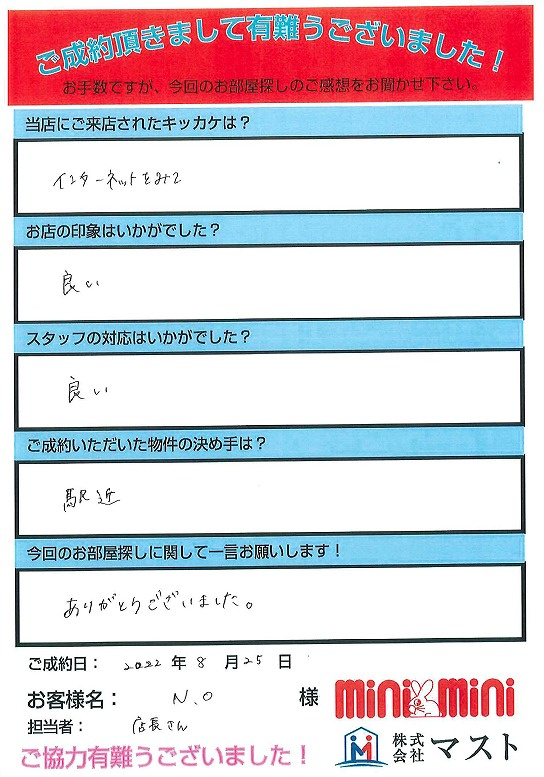 ご成約頂きまして有難うございました！
お手数ですが、今回のお部屋探しのご感想をお聞かせ下さい。
当店にご来店されたキッカケは？
インターネットをみて
お店の印象はいかがでした？
良い
スタッフの対応はいかがでした？
良い
ご成約いただいた物件の決め手は？
駅近
今回のお部屋探しに関して一言お願いします！
ありがとうございました。
ご成約日： 2022 年 8 月 25 日
お客様名： N.O 様
担当者： 店長さん
mini mini
株式会社 マスト
ご協力有難うございました！